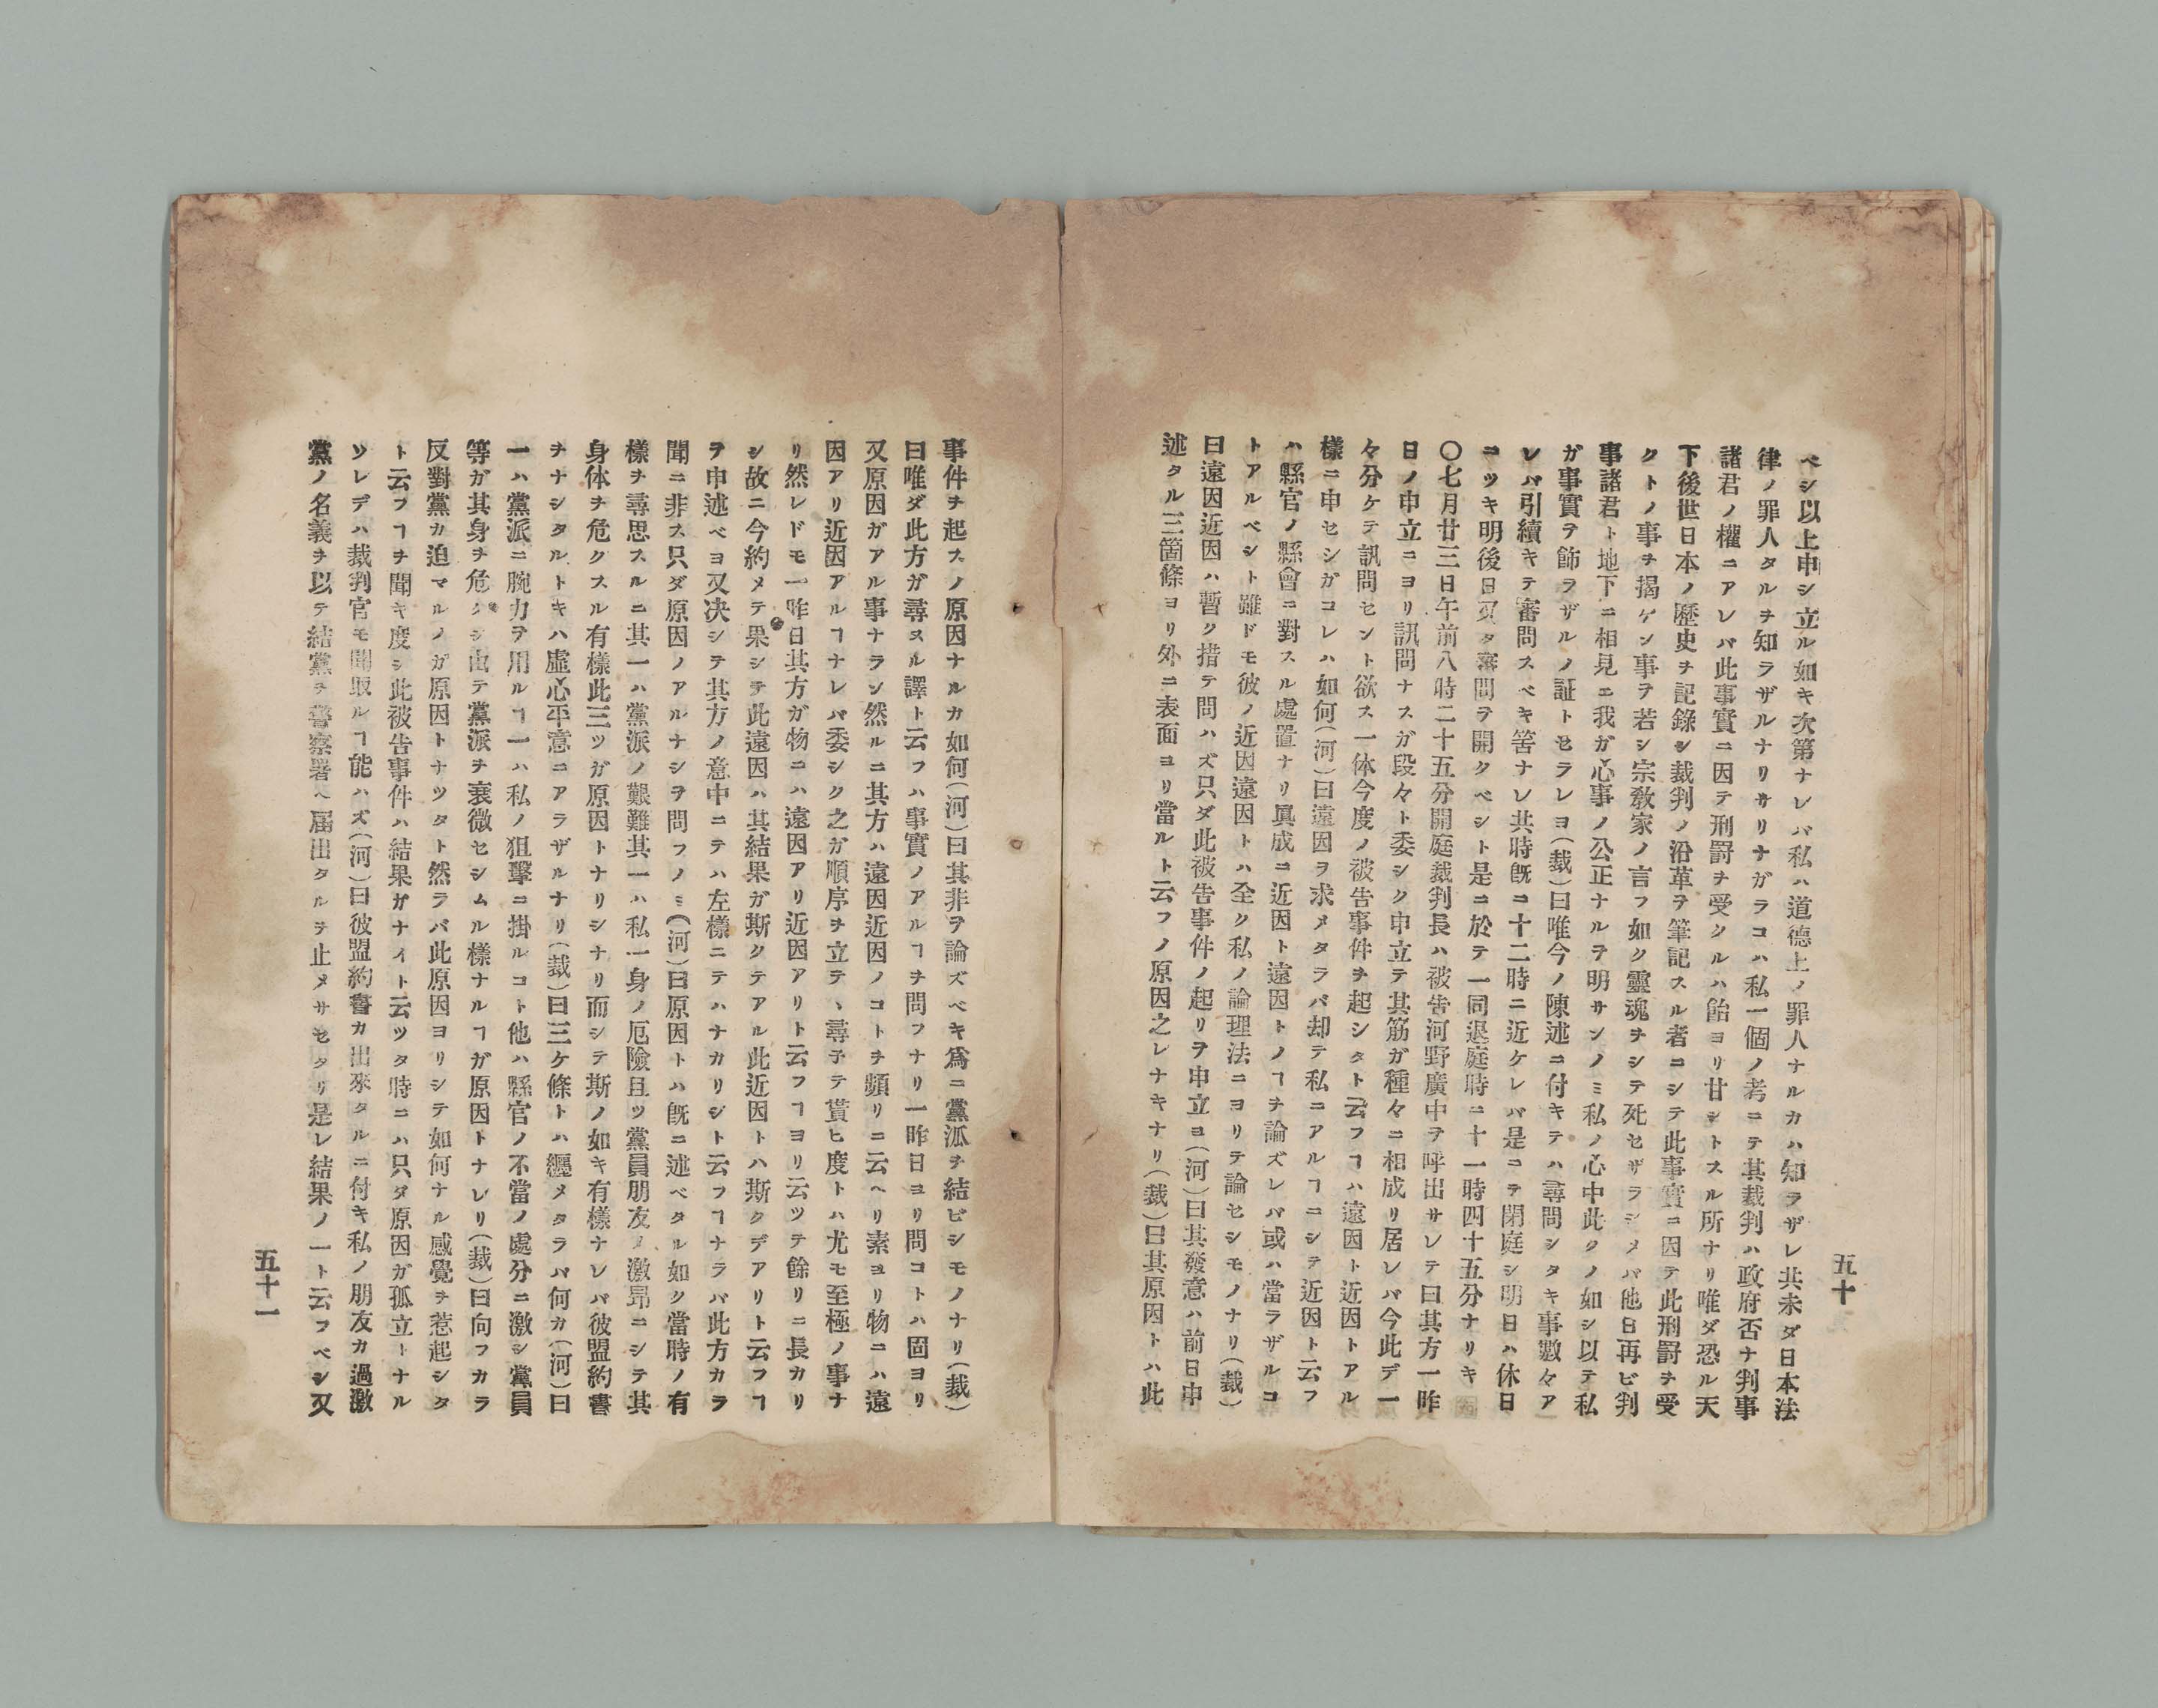 ベシ以上申シ立ル如キ次第ナレバ私ハ道德上ノ罪人ナルカハ知ラザレ共未ダ日本法
律ノ罪人タルヲ知ラザルナリサリナガラコハ私一個ノ考ニテ其裁判ハ政府否ナ判事
諸君ノ權ニアレバ此事實ニ因テ刑罰ヲ受クルハ飴ヨリ甘シトスル所ナリ唯ダ恐ル天
下後世日本ノ歷史ヲ記錄シ裁判ノ沿革ヲ筆記スル者ニシテ此事實ニ因テ此刑罰ヲ受
クトノ事ヲ揭ケン事ヲ若シ宗敎家ノ言フ如ク靈魂ヲシテ死セザラシメバ他日再ビ判
事諸君ト地下ニ相見エ我ガ心事ノ公正ナルヲ明サンノミ私ノ心中此クノ如シ以テ私
ガ事實ヲ飾ラザルノ証トセラレヨ(裁)曰唯今ノ陳述ニ付キテハ尋問シタキ事數々ア
レバ引續キテ審問スベキ筈ナレ共時既ニ十二時ニ近ケレバ是ニテ閉庭シ明日ハ休日
ニツキ明後日又タ審問ヲ開クベシト是ニ於テ一同退庭時ニ十一時四十五分ナリキ
〇七月廿三日午前八時二十五分開庭裁判長ハ被告河野廣中ヲ呼出サレテ曰其方一昨
日ノ申立ニヨリ訊問ナスガ段々ト委シク申立テ其筋ガ種々ニ相成リ居レバ今此デ一
々分ケテ訊問セント欲ス一体今度ノ被告事件ヲ起シタト云フヿハ遠因ト近因トアル
樣ニ申セシガコレハ如何(河)曰遠因ヲ求メタラバ却テ私ニアルヿニシテ近因ト云フ
ハ縣官ノ縣會ニ對スル處置ナリ眞成ニ近因ト遠因トノヿヲ論ズレバ或ハ當ラザルコ
トアルベシト雖ドモ彼ノ近因遠因トハ全ク私ノ論理法ニヨリテ論セシモノナリ(裁)
曰遠因近因ハ暫ク措テ問ハズ只ダ此被告事件ノ起リヲ申立ヨ(河)曰其發意ハ前日申
述タル三箇條ヨリ外ニ表面ヨリ當ルト云フノ原因之レナキナリ(裁)曰其原因トハ此
五十
事件ヲ起スノ原因ナルカ如何(河)曰其非ヲ論ズベキ爲ニ黨派ヲ結ビシモノナリ(裁)
曰唯ダ此方ガ尋ヌル譯ト云フハ事實ノアルヿヲ問フナリ一昨日ヨリ問コトハ固ヨリ
又原因ガアル事ナラン然ルニ其方ハ遠因近因ノコトヲ頻リニ云ヘリ素ヨリ物ニハ遠
因アリ近因アルヿナレバ委シク之ガ順序ヲ立テヽ尋子テ貰ヒ度トハ尤モ至極ノ事ナ
リ然レドモ一昨日其方ガ物ニハ遠因アリ近因アリト云フヿヨリ云ツテ餘リニ長カリ
シ故ニ今約メテ果シテ此遠因ハ其結果ガ斯クテアル此近因トハ斯クデアリト云フヿ
ヲ申述ベヨ又决シテ其方ノ意中ニテハ左樣ニテハナカリシト云フヿナラバ此方カラ
聞ニ非ス只ダ原因ノアルナシヲ問フノミ(河)曰原因トハ既ニ述ベタル如ク當時ノ有
樣ヲ尋思スルニ其一ハ黨派ノ艱難其一ハ私一身ノ厄險且ツ黨員朋友ノ激昂ニシテ其
身体ヲ危クスル有樣此三ツガ原因トナリシナリ而シテ斯ノ如キ有樣ナレバ彼盟約書
ヲナシタルトキハ虛心平意ニアラザルナリ(裁)曰三ケ條トハ纒メタラバ何カ(河)曰
一ハ黨派ニ腕力ヲ用ルヿ一ハ私ノ狙擊ニ掛ルコト他ハ縣官ノ不當ノ處分ニ激シ黨員
等ガ其身ヲ危クシ由テ黨派ヲ衰微セシムル樣ナルヿガ原因トナレリ(裁)曰向フカラ
反對黨カ迫マルノガ原因トナツタト然ラバ此原因ヨリシテ如何ナル感覺ヲ惹起シタ
ト云フヿヲ聞キ度シ此被告事件ハ結果ガナイト云ツタ時ニハ只ダ原因ガ孤立トナル
ソレデハ裁判官モ聞取ルヿ能ハズ(河)曰彼盟約書カ出來タルニ付キ私ノ朋友カ過激
黨ノ名義ヲ以テ結黨ヲ警察署ヘ屆出タルヲ止メサセタリ是レ結果ノ一ト云フベシ又
五十一